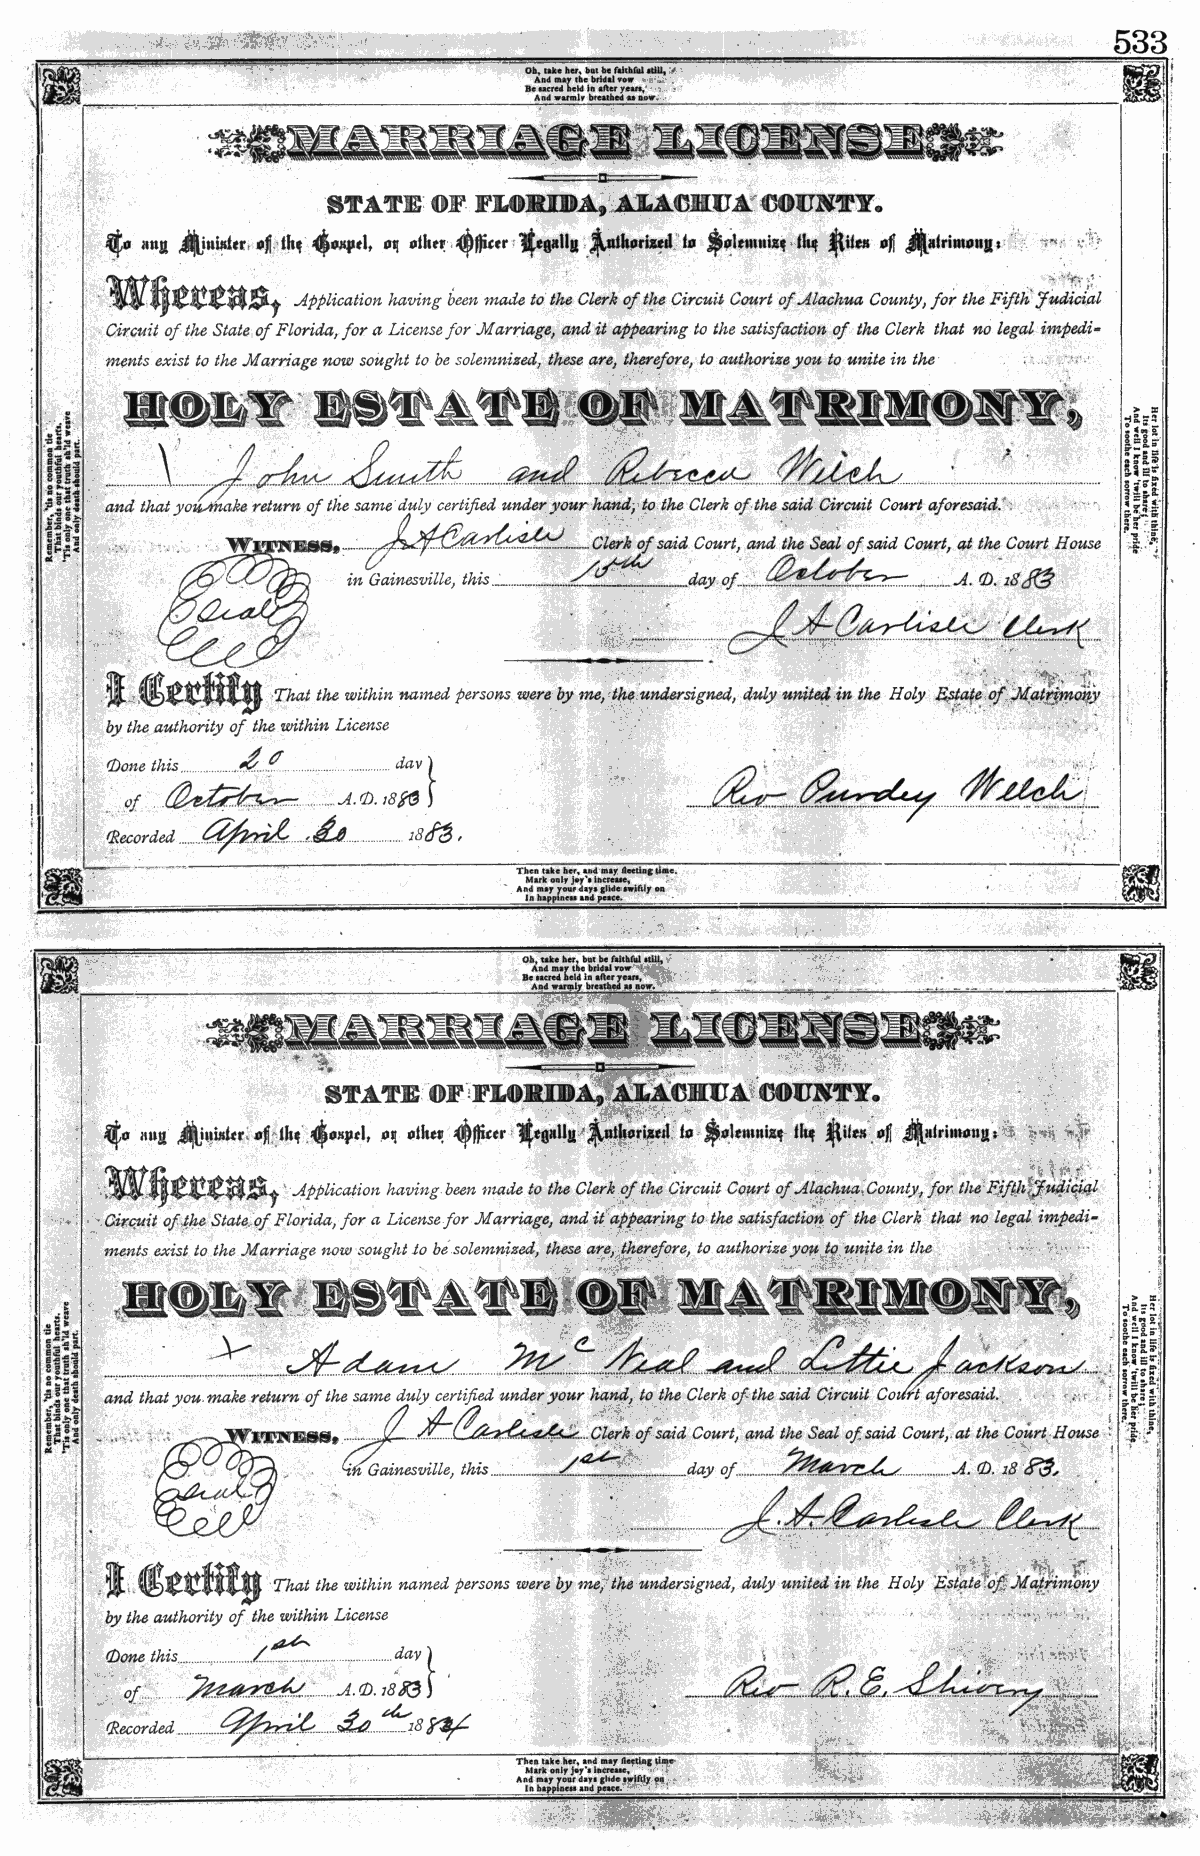 533
Oh, take her, but be faithful still,
And may the bridal vow
Be sacred held in after years,
And warmly breathed as now.
MARRIAGE LICENSE
STATE OF FLORIDA, ALACHUA COUNTY.
To any Minister of the Gospel, or other Officer Legally Authorized to Solemnize the Rites of Matrimony:
Whereas, Application having been made to the Clerk of the Circuit Court of Alachua County, for the Fifth Judicial
Circuit of the State of Florida, for a License for Marriage, and it appearing to the satisfaction of the Clerk that no legal impedi-
ments exist to the Marriage now sought to be solemnized, these are, therefore, to authorize you to unite in the
HOLY ESTATE OF MATRIMONY,
John Smith and Rebecca Welch
and that you make return of the same duly certified under your hand, to the Clerk of the said Circuit Court aforesaid.
WITNESS, J A Carlisle Clerk of said Court, and the Seal of said Court, at the Court House
in Gainesville, this 15th day of October A. D. 1883
Seal
J A Carlisle Clerk
I Certify That the within named persons were by me, the undersigned, duly united in the Holy Estate of Matrimony
by the authority of the within License
Done this 20 day
of October A.D. 1883
Rev Purdey Welch
Recorded April 30 1883.
Then take her, and may fleeting time.
Mark only joy's increase,
And may your days glide swiftly on
In happiness and peace.
Remember, 'tis no common tie
That binds our youthful hearts,
'Tis only one that truth sh'ld weave
And only death should part.
Her lot in life is fixed with thine,
Its good and ill to share;
And well I know 'twill be her pride
To soothe each sorrow there.
Oh, take her, but be faithful still,
And may the bridal vow
Be sacred held in after years,
And warmly breathed as now.
MARRIAGE LICENSE
STATE OF FLORIDA, ALACHUA COUNTY.
To any Minister of the Gospel, or other Officer Legally Authorized to Solemnize the Rites of Matrimony:
Whereas, Application having been made to the Clerk of the Circuit Court of Alachua County, for the Fifth Judicial
Circuit of the State of Florida, for a License for Marriage, and it appearing to the satisfaction of the Clerk that no legal impedi-
ments exist to the Marriage now sought to be solemnized, these are, therefore, to authorize you to unite in the
HOLY ESTATE OF MATRIMONY,
X Adam Mc Neal and Littie Jackson
and that you make return of the same duly certified under your hand, to the Clerk of the said Circuit Court aforesaid.
WITNESS, J A Carlisle Clerk of said Court, and the Seal of said Court, at the Court House
in Gainesville, this 1st day of March A. D. 1883.
Seal
J. A. Carlisle Clerk
I Certify That the within named persons were by me, the undersigned, duly united in the Holy Estate of Matrimony
by the authority of the within License
Done this 1st day
of March A.D. 1883
Rev R. E. Shivery
Recorded April 30th 1884
Then take her, and may fleeting time
Mark only joy's increase,
And may your days glide swiftly on
In happiness and peace.
Remember, 'tis no common tie
That binds our youthful hearts,
'Tis only one that truth sh'ld weave
And only death should part.
Her lot in life is fixed with thine,
Its good and ill to share;
And well I know 'twill be her pride
To soothe each sorrow there.